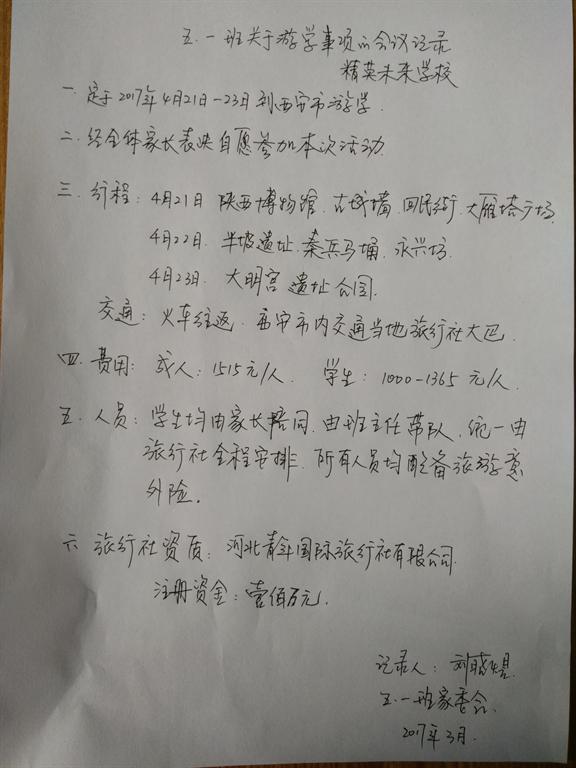 五.一班关于游学事项的会议记录
精英未来学校
一 定于2017年4月21日-23日到西安市游学.
二.经全体家长表决自愿参加本次活动.
三.行程:4月21日 陕西博物馆.古城墙.回民街.大雁塔广场.
4月22日.半坡遗址.秦兵马俑.永兴坊.
4月23日.大明宫遗址公园.
交通:火车往返.西安市内交通当地旅行社大巴.
四.费用:成人:1515元/人. 学生:1000-1365元/人.
五.人员:学生均由家长陪同.由班主任带队.统一由
旅行社全程安排.所有人员均配备旅游意
外险.
六 旅行社资质:河北青年国际旅行社有限公司.
注册资金:壹佰万元.
记录人:刘晓
五.一班家委会.
2017年3月.